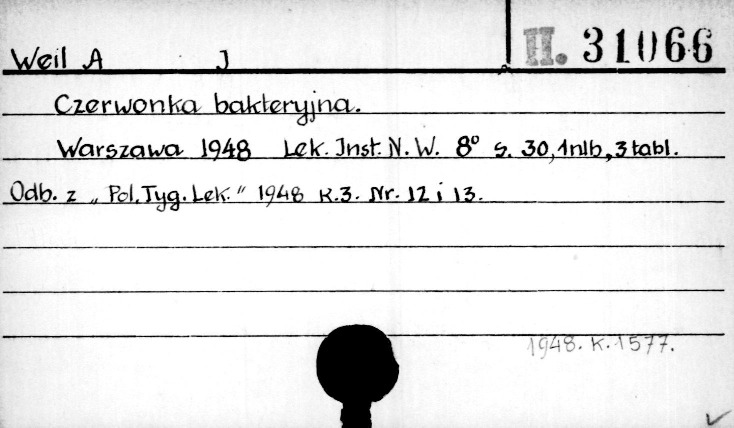 Weil A J II. 31066
Czerwonka bakteryjna.
Warszawa 1948 Lek. Inst. N. W. 8° s. 30, 1nlb, 3 tabl.
Odb. z „Pol. Tyg. Lek." 1948 R.3. Nr. 12 i 13.
1948. K. 1577.